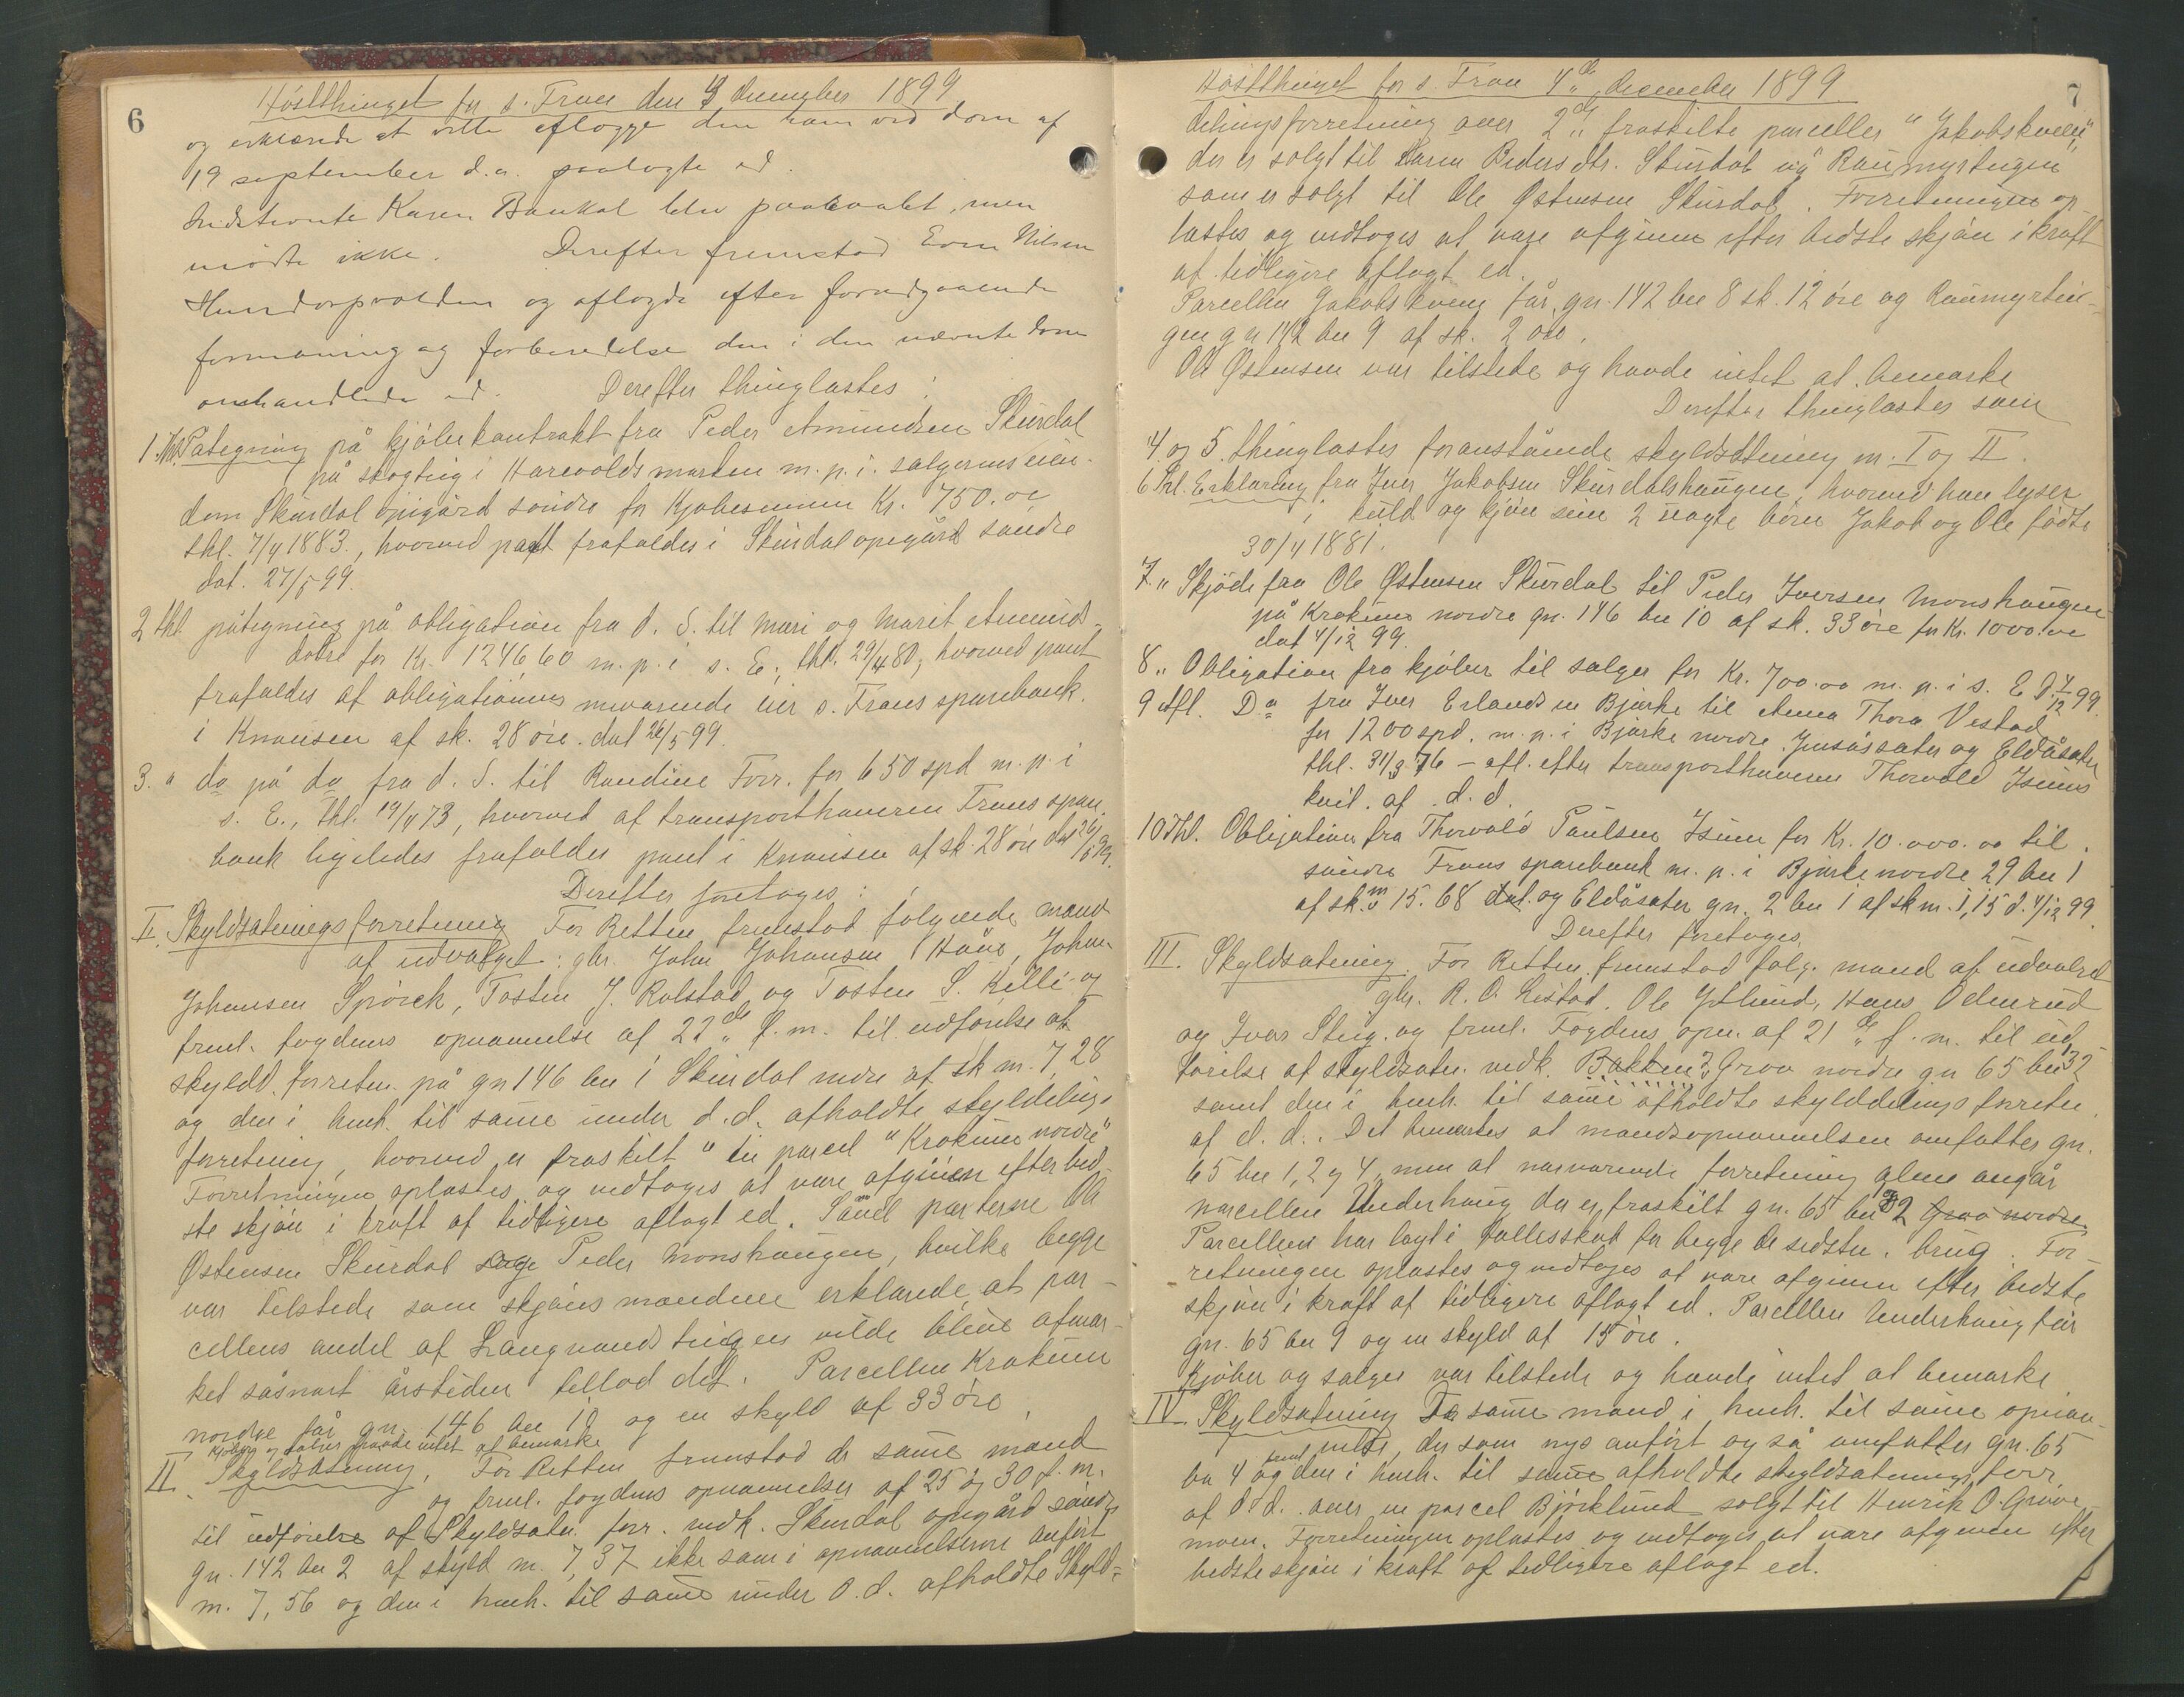 6
Høstthinget for s. Fron den 4 december 1899
og erklærede at ville aflægge den ham ved dom af
19 september d.a. paalagte ed.
Indstevnte Karen Baukal blev paaraabt, men
mødte ikke. Derefter fremstod Even Nilsen
Hundorpvolden og aflagde efter forudgaaende
formaning og forberedelse den i den nævnte dom
omhandlede ed. Derefter thinglæstes:
1. Thl. Påtegning på kjøbekontrakt fra Peder Amundsen Skurdal
på skogteig i Harevoldsmarken m. p. i. sælgerens eien-
dom Skurdal opigård søndre for Kjøbesummen Kr. 750.00
thl. 7/4 1883, hvorved pant frafaldes i Skurdal opigård søndre
dat. 27/5 99.
2 thl. påtegning på obligation fra d. S. til Mari og Marit Amunds-
døtre for Kr. 1246,60 m. p. i s. E., thl. 29/4 80, hvorved pant
frafaldes af obligationens nuværende eier s. Frons sparebank.
i Knausen af sk. 28 øre. dat 26/5 99.
3. " do på do fra d. S. til Randine Forr. for 650 spd m. p. i
s. E., thl. 19/4 73, hvorved af transporthaveren Frons spare
bank ligeledes frafaldes pant i Knausen af sk. 28 øre dat 26/5 99.
Derefter foretoges:
I. Skyldsætningsforretning For Retten fremstod følgende mænd
af udvalget: gbr. John Johansen Haave, Johan
Johansen Spörck, Tosten J. Rolstad og Tosten S. Killi og
freml. fogdens opnævnelse af 22de f. m. til udførelse af
skyldd. forretn. på gn 146 bn 1 Skurdal nedre af sk m. 7,28
og den i henh. til samme under d. d. afholdte skylddelings
forretning, hvorved er fraskilt " en parcel "Krokmin nordre"
Forretningen oplæstes og vedtoges at være afgiven efter bed-
ste skjøn i kraft af tidligere aflagt ed. Såvel parterne Ole
Østensen Skurdal og Peder Monshaugen, hvilke begge
var tilstede som skjønsmændene erklærede, at par-
cellens andel af Langvandsteigen vilde blive afmær-
ket såsnart årstiden tillod det. Parcellen Krokmin
nordre får gn. 146 bn 10 og en skyld af 33 øre.
Kjøber og sælger havde intet at bemærke
II. Skyldsætning. For Retten fremstod de samme mænd
og freml. fogdens opnævnelser af 25 og 30 f. m.
til udførelse af Skyldsætn. forr. vedk. Skurdal opigård søndre
gn. 142 bn 2 af skyld m. 7,37 ikke som i opnævnelserne anført
m. 7,56 og den i henh. til samme under d. d. afholdte Skyld-
7
Høstthinget for s. Fron 4de december 1899
delingsforretning over 2de fraskilte parceller "Jakobskveen",
der er solgt til Karen Pedersdtr. Skurdal og Raumyrteigen
som er solgt til Ole Østensen Skurdal. Forretningen op-
læstes og vedtoges at være afgiven efter bedste skjøn i kraft
af tidligere aflagt ed.
Parcellen Jakobskveen får gn. 142 bn 8 sk. 12 øre og Raumyrtei-
gen gn 142 bn 9 af sk. 2 øre.
Ole Østensen var tilstede og havde intet at bemærke
Derefter thinglæstes som
4 og 5. thinglæstes foranstående skyldsætning nr. I og II.
6 Thl. Erklæring fra Iver Jakobsen Skurdalshaugen, hvorved han lyser
i kuld og kjøn sine 2 uægte børn Jakob og Ole fødte
30/4 1881.
7 " Skjøde fra Ole Østensen Skurdal til Peder Iversen Monshaugen
på Krokmin nordre gn. 146 bn 10 af sk. 33 øre for Kr. 1000.00
dat 4/12 99.
8 " Obligation fra kjøber til sælger for Kr. 700.00 m. p. i s. E. d. 4/12 99.
9 Afl. Do fra Iver Erlandsen Bjørke til Anna Thora Vestad
for 1200 spd. m. p. i Bjørke nordre. Jensåssæter og Eldåsæter
thl. 31/3 76 – afl. efter transporthaveren Thorvald Isums
kvit. af d. d.
10 Thl. Obligation fra Thorvald Paulsen Isum for Kr. 10.000.00 til
søndre Frons sparebank m. p. i Bjørke nordre 29 bn 1
af sk. m 15.68 og Eldåsæter gn. 2 bn 1 af sk m. 1,15 d. 4/12 99
Derefter foretoges.
III. Skyldsætning. For Retten fremstod følg. mænd af udvalget
gbr. R. O. Listad. Ole Ytlund, Hans Odenrud
og Ivar Stug. og freml. Fogdens opn. af 21de f. m. til ud-
førelse af skyldsætn. vedk. Bakken & Groo nordre gn 65 bn 1 & 2
samt den i henh. til samme afholdte skylddelingsforretn.
af d. d. Det bemærkes at mandsopnævnelsen omfatter gn.
65 bn 1, 2 og 4, men at nærværende forretning alene angår
parcellen Underhaug der er fraskilt gn. 65 bn 1 og 2 Groo nordre
Parcellen har lagt i fællesskab for begge de sidstn. brug. For-
retningen oplæstes og vedtoges at være afgiven efter bedste
skjøn i kraft af tidligere aflagt ed. Parcellen Underhaug får
gn. 65 bn 9 og en skyld af 15 øre.
Kjøber og sælger var tilstede og havde intet at bemærke
IV. Skyldsætning De samme mænd i henh. til samme opnæv-
nelse, der som nys anført også omfatter gn. 65
bn 4 og freml. den i henh. til samme afholdte skyldsætnings forr.
af d. d. over en parcel Bjørklund solgt til Henrik O. Grove
moen. Forretningen oplæstes og vedtoges at være afgiven efter
bedste skjøn i kraft af tidligere aflagt ed.